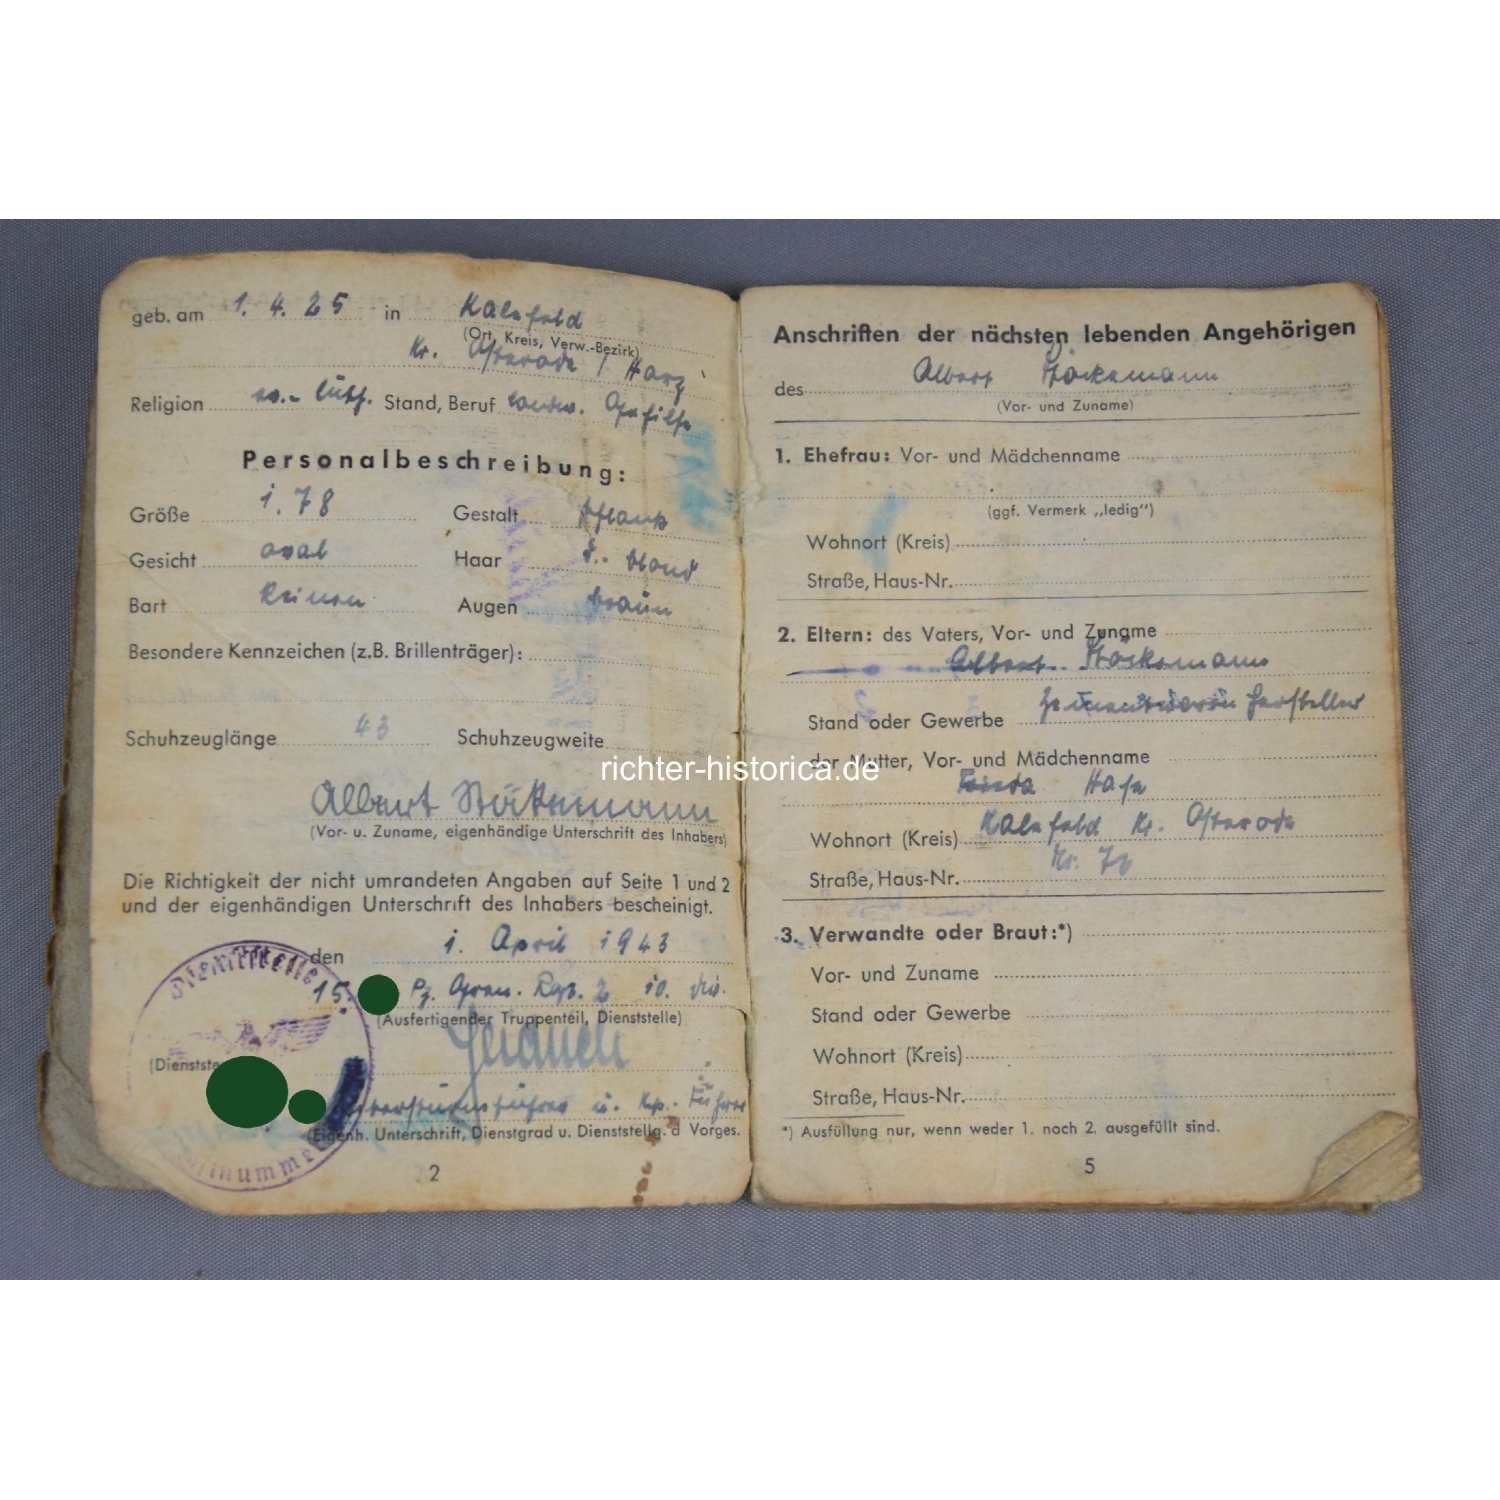 geb. am 1. 4. 25 in Kalefeld
(Ort, Kreis, Verw.-Bezirk)
Kr. Osterode / Harz
Religion ev.- luth. Stand, Beruf landw. Gehilfe
Personalbeschreibung:
Größe 1.78 Gestalt schlank
Gesicht oval Haar d.- blond
Bart keinen Augen braun
Besondere Kennzeichen (z.B. Brillenträger):
Schuhzeuglänge 43 Schuhzeugweite
Albert Stöckemann
(Vor- u. Zuname, eigenhändige Unterschrift des Inhabers)
Die Richtigkeit der nicht umrandeten Angaben auf Seite 1 und 2
und der eigenhändigen Unterschrift des Inhabers bescheinigt.
den 1. April 1943
15. Pz. Gren. Rgt. 2 10. Div.
(Ausfertigender Truppenteil, Dienststelle)
Dienststelle
u. Kp. Führer
(Eigenh. Unterschrift, Dienstgrad u. Dienststellg. d Vorges.
2
Anschriften der nächsten lebenden Angehörigen
des Albert Stöckemann
(Vor- und Zuname)
1. Ehefrau: Vor- und Mädchenname
(ggf. Vermerk „ledig")
Wohnort (Kreis)
Straße, Haus-Nr.
2. Eltern: des Vaters, Vor- und Zuname
Albert Stöckemann
Stand oder Gewerbe Hersteller
der Mutter, Vor- und Mädchenname
Frieda
Wohnort (Kreis) Kalefeld Kr. Osterode
Straße, Haus-Nr. Nr.
3. Verwandte oder Braut:*)
Vor- und Zuname
Stand oder Gewerbe
Wohnort (Kreis)
Straße, Haus-Nr.
*) Ausfüllung nur, wenn weder 1. noch 2. ausgefüllt sind.
5
richter-historica.de